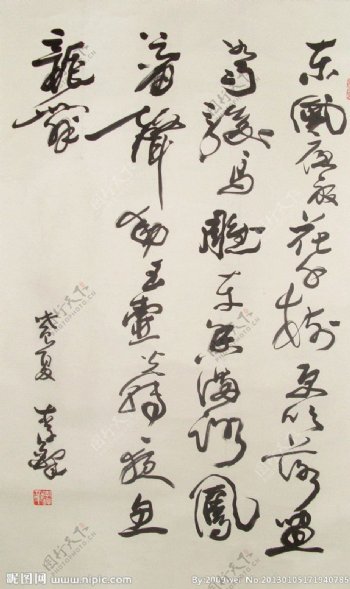 東風夜放花千樹更吹落星
如雨寶馬雕車香滿路鳳
簫聲動玉壺光轉一夜魚
龍舞
夏 李
昵图网 www.nipic.com
By:2009yei No:20130105171940785